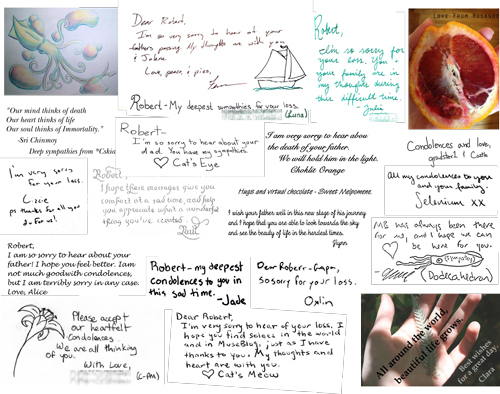 Dear Robert,
I'm so very sorry to hear of your
fathers passing. My thoughts are with you
& Jolene.
Love, peace, & pies,
Robert- My deepest sympathies for your loss.
(Luna)
Robert,
I'm so sorry for
your loss. You +
your family are in
my thoughts during
this difficult time.
Julia
LOVE FROM ROSANNE
"Our mind thinks of death
Our heart thinks of life
Our soul thinks of Immortality."
-Sri Chinmoy
Deep sympathies from *Cskia
Robert-
I'm so sorry to hear about your
dad. You have my sympathies.
♡ Cat's Eye
I am very sorry to hear abou
the death of your father.
We will hold him in the light.
Choklit Orange
Condolences and love,
& Castle
I'm very sorry
for your loss.
ps thanks for all you
do for us!
Robert,
I hope these messages give you
comfort at a sad time, and help
you appreciate what a wonderful
thing you've created.
Hugs and virtual chocolate - Sweet Melpomene.
I wish your father well in this new stage of his journey
and I hope that you are able to look towards the sky
and see the beauty of life in the hardest times.
All my condolences to you
and your family.
Selenium XX
MB has always been there
for us, and I hope we can
be here for you.
(sympathy)
(Dodecahedron)
Robert,
I am so sorry to hear about your
father! I hope you feel better. I am
not much good with condolences,
but I am terribly sorry in any case.
Love, Alice
Robert- my deepest
condolences to you in
this sad time.
-Jade
Dear Robert-Gapa,
so sorry for your loss.
Oxlin
Please accept
our heartfelt
condolences.
We are all thinking
of you.
With Love,
Dear Robert,
I'm very sorry to hear of your loss. I
hope you find solace in the world
and in MuseBlog, just as I have
thanks to you. My thoughts and
heart are with you.
♡ Cat's Meow
All around the world,
beautiful life grows.
Best wishes
for a great day,
Clara